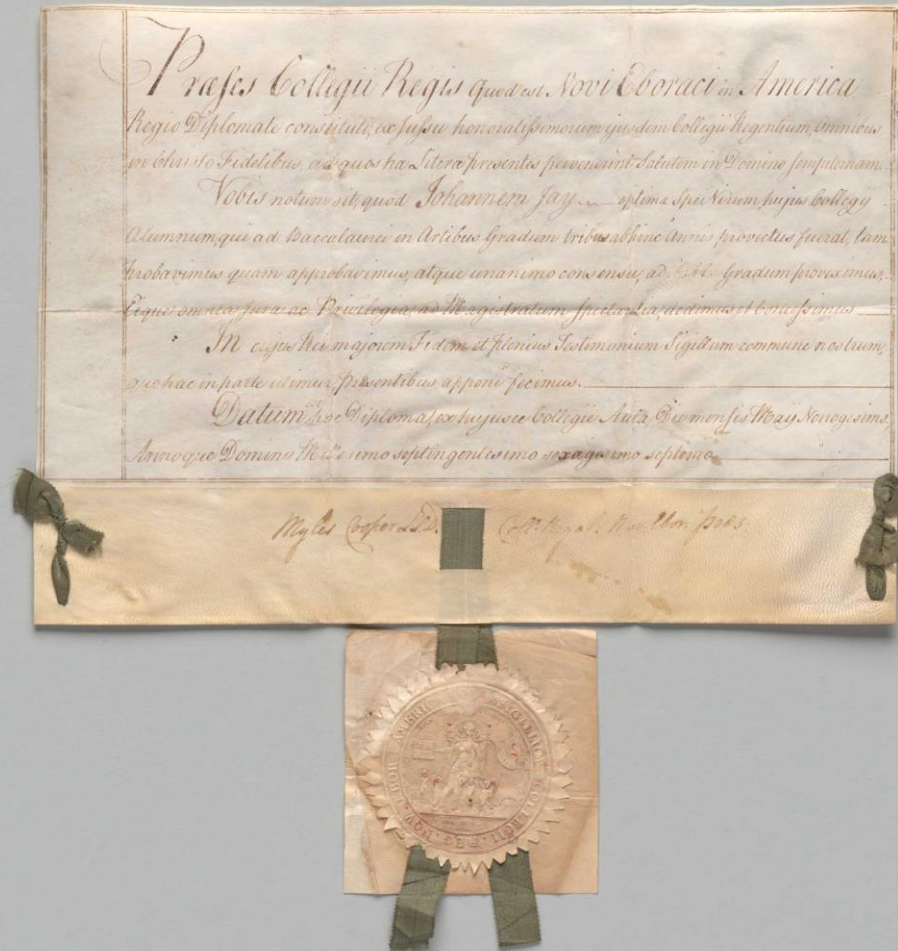 Præses Collegii Regis quod est Novi Eboraci in America
Regio Diplomate constituti, ex Jussu honoratissimorum ejusdem Collegii Regentium, omnibus
in Christo Fidelibus, ad quos hæ Literæ presentes pervenerint Salutem in Domino sempiternam.
Vobis notum sit, quod Johannem Jay optimæ Spei Virum, hujus Collegij
Alumnum, qui ad Baccalaurei in Artibus Gradum tribus abhinc Annis provectus fuerat, tam
probavimus quam approbavimus, atque unanimo consensu, ad Gradum proveximus,
Eique omnia Jura ac Privilegia, ad Magistratum Spectantia, dedimus et Concessimus
In cujus Rei majorem Fidem et plenius Testimonium Sigillum commune nostrum,
quo hac in parte utimur, Præsentibus apponi fecimus.
Datum hoc Diploma, ex hujusce Collegii Aula, Die mensis Maij
Annoque Domini simo septingentesimo sexagesimo septimo
Myles Cooper LLD. Coll. Novi Ebor. Præs.
SIGILLUM COLLEGII REG. NOV. EBOR. AMERIC